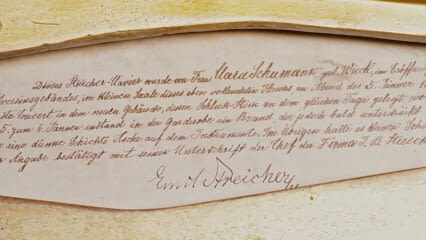 Dieses Streicher-Clavier wurde von Frau Clara Schumann geb. Wieck, im Eröffnung
vereinsgebäudes, im kleinen Saale dieses eben vollendeten Hauses am Abend des 5. Jänner 18
Concert in dem neuen Gebäude, dessen Schluss-Stein an dem gleichen Tage gelegt wor
5. zum 6. Jänner entstand in der Garderobe ein Brand, der jedoch bald unterdrückt
eine dünne Schichte Asche auf dem Instrumente. Im übrigen hatte es keinen Scha
Angabe bestätigt mit seiner Unterschrift der Chef der Firma J. B. Streich
Emil Streicher